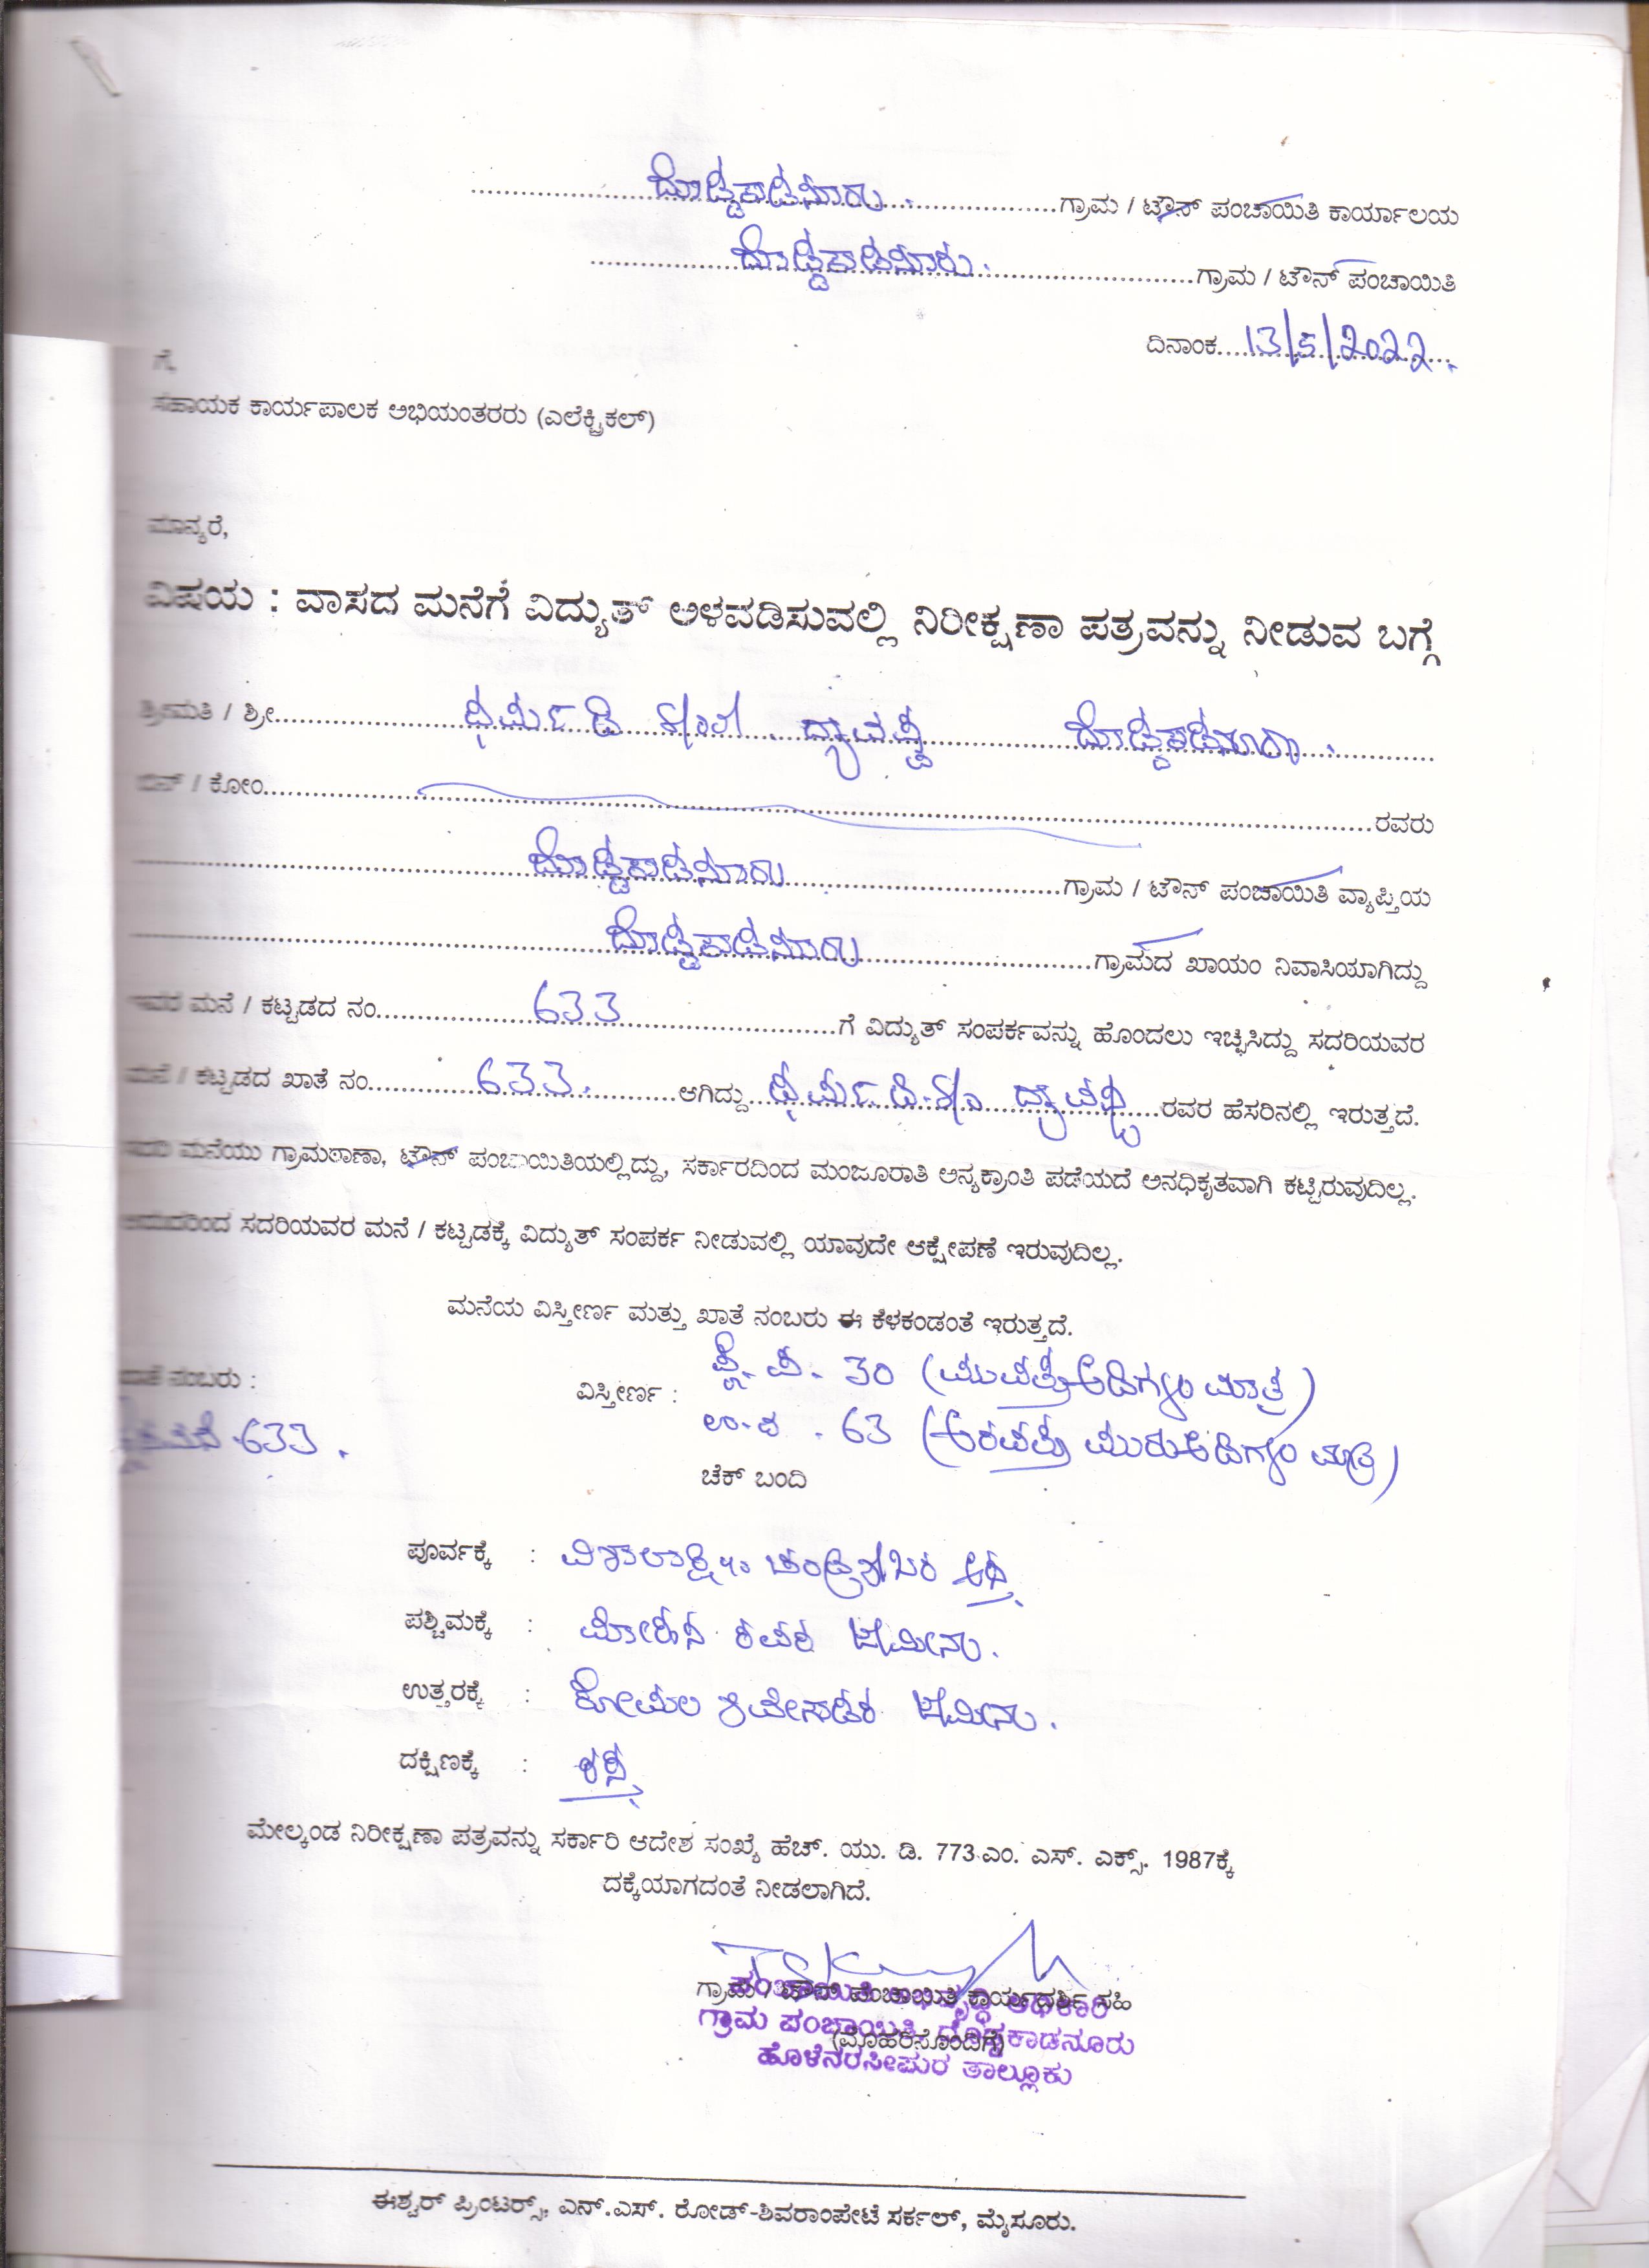 ದೊಡ್ಡಕಾಡನೂರು. ಗ್ರಾಮ / ಟೌನ್ ಪಂಚಾಯಿತಿ ಕಾರ್ಯಾಲಯ
ದೊಡ್ಡಕಾಡನೂರು. ಗ್ರಾಮ / ಟೌನ್ ಪಂಚಾಯಿತಿ
ದಿನಾಂಕ 13/5/2022.
ಗೆ,
ಸಹಾಯಕ ಕಾರ್ಯಪಾಲಕ ಅಭಿಯಂತರರು (ಎಲೆಕ್ಟ್ರಿಕಲ್)
ಮಾನ್ಯರೆ,
ವಿಷಯ : ವಾಸದ ಮನೆಗೆ ವಿದ್ಯುತ್ ಅಳವಡಿಸುವಲ್ಲಿ ನಿರೀಕ್ಷಣಾ ಪತ್ರವನ್ನು ನೀಡುವ ಬಗ್ಗೆ
ಶ್ರೀಮತಿ / ಶ್ರೀ ಧರ್ಮ ಡಿ ದ್ಯಾವಪ್ಪ ದೊಡ್ಡಕಾಡನೂರು.
ಬಿನ್ / ಕೋಂ ರವರು
ದೊಡ್ಡಕಾಡನೂರು ಗ್ರಾಮ / ಟೌನ್ ಪಂಚಾಯಿತಿ ವ್ಯಾಪ್ತಿಯ
ದೊಡ್ಡಕಾಡನೂರು ಗ್ರಾಮದ ಖಾಯಂ ನಿವಾಸಿಯಾಗಿದ್ದು
ಇವರ ಮನೆ / ಕಟ್ಟಡದ ನಂ. 633 ಗೆ ವಿದ್ಯುತ್ ಸಂಪರ್ಕವನ್ನು ಹೊಂದಲು ಇಚ್ಛಿಸಿದ್ದು ಸದರಿಯವರ
ಮನೆ / ಕಟ್ಟಡದ ಖಾತೆ ನಂ. 633. ಆಗಿದ್ದು ಧರ್ಮ ಡಿ. ದ್ಯಾವಪ್ಪ ರವರ ಹೆಸರಿನಲ್ಲಿ ಇರುತ್ತದೆ.
ಮನೆಯು ಗ್ರಾಮಠಾಣಾ, ಟೌನ್ ಪಂಚಾಯಿತಿಯಲ್ಲಿದ್ದು, ಸರ್ಕಾರದಿಂದ ಮಂಜೂರಾತಿ ಅನ್ಯಕ್ರಾಂತಿ ಪಡೆಯದೆ ಅನಧಿಕೃತವಾಗಿ ಕಟ್ಟಿರುವುದಿಲ್ಲ.
ಆದುದರಿಂದ ಸದರಿಯವರ ಮನೆ / ಕಟ್ಟಡಕ್ಕೆ ವಿದ್ಯುತ್ ಸಂಪರ್ಕ ನೀಡುವಲ್ಲಿ ಯಾವುದೇ ಆಕ್ಷೇಪಣೆ ಇರುವುದಿಲ್ಲ.
ಮನೆಯ ವಿಸ್ತೀರ್ಣ ಮತ್ತು ಖಾತೆ ನಂಬರು ಈ ಕೆಳಕಂಡಂತೆ ಇರುತ್ತದೆ.
ಖಾತೆ ನಂಬರು :
633.
ವಿಸ್ತೀರ್ಣ : 30 (ಮುವತ್ತು ಅಡಿಗಳು ಮಾತ್ರ)
63 (ಅರವತ್ತು ಮುರು ಅಡಿಗಳು ಮಾತ್ರ)
ಚೆಕ್ ಬಂದಿ
ಪೂರ್ವಕ್ಕೆ : ವಿಶಾಲಾಕ್ಷಿ ಆಸ್ತಿ
ಪಶ್ಚಿಮಕ್ಕೆ : ಮೋಹಿನಿ ರವರ ಜಮೀನು.
ಉತ್ತರಕ್ಕೆ : ಕೋಮಲ ಜಮೀನು.
ದಕ್ಷಿಣಕ್ಕೆ : ರಸ್ತೆ
ಮೇಲ್ಕಂಡ ನಿರೀಕ್ಷಣಾ ಪತ್ರವನ್ನು ಸರ್ಕಾರಿ ಆದೇಶ ಸಂಖ್ಯೆ ಹೆಚ್. ಯು. ಡಿ. 773 ಎಂ. ಎಸ್. ಎಕ್ಸ್. 1987ಕ್ಕೆ
ದಕ್ಕೆಯಾಗದಂತೆ ನೀಡಲಾಗಿದೆ.
ಗ್ರಾಮ / ಟೌನ್ ಪಂಚಾಯಿತಿ ಕಾರ್ಯದರ್ಶಿ ಸಹಿ
(ಮೊಹರಿನೊಂದಿಗೆ)
ಪಂಚಾಯಿತಿ ಅಭಿವೃದ್ಧಿ ಅಧಿಕಾರಿ
ಗ್ರಾಮ ಪಂಚಾಯಿತಿ, ದೊಡ್ಡಕಾಡನೂರು
ಹೊಳೆನರಸೀಪುರ ತಾಲ್ಲೂಕು
ಈಶ್ವರ್ ಪ್ರಿಂಟರ್ಸ್, ಎನ್.ಎಸ್. ರೋಡ್-ಶಿವರಾಂಪೇಟೆ ಸರ್ಕಲ್, ಮೈಸೂರು.